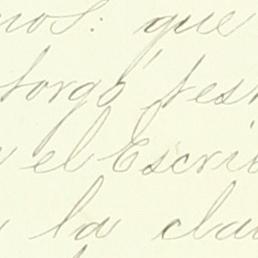 nos: que
torgó test
el Escrib
la clau